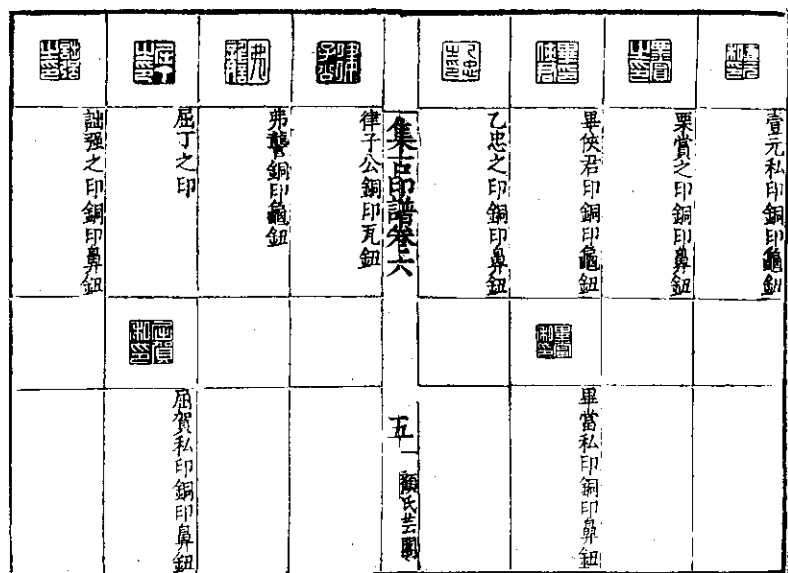 壹元私印銅印龜鈕
栗賞之印銅印鼻鈕
畢俠君印銅印龜鈕
畢當私印銅印鼻鈕
乙忠之印銅印鼻鈕
集古印譜卷六
五
顧氏芸閣
律子公銅印瓦鈕
弗龒銅印龜鈕
屈丁之印
屈賀私印銅印鼻鈕
詘强之印銅印鼻鈕